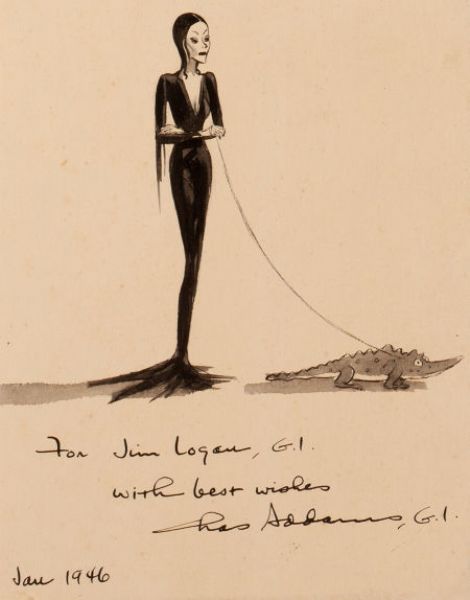 For Jim Logan, G.I.
with best wishes
Chas Addams, G.I.
Jan 1946